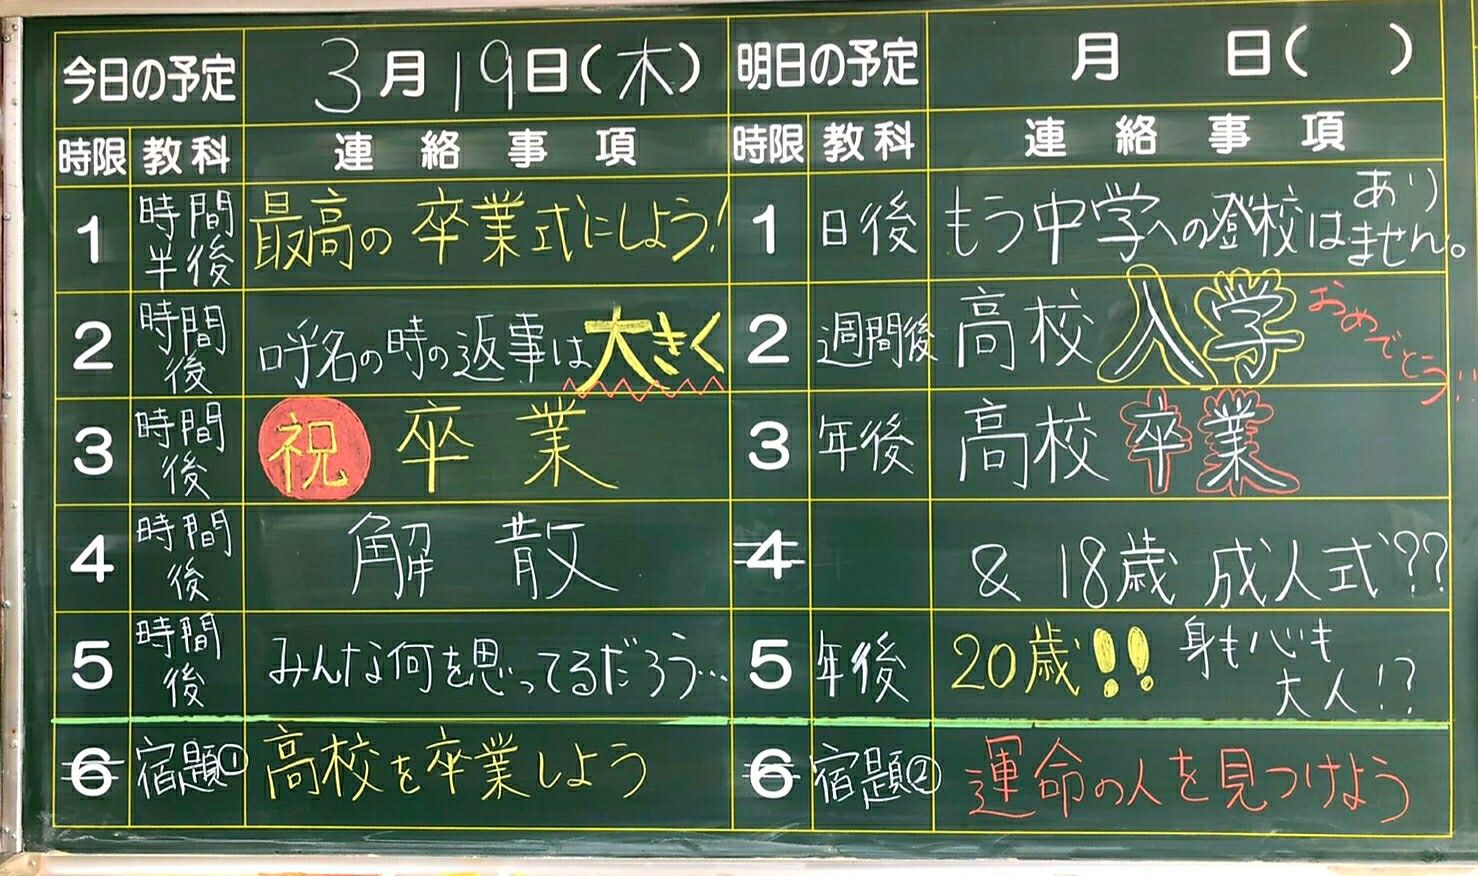 今日の予定 3月19日(木)
時限 教科 連絡事項
1 時間半後 最高の卒業式にしよう!
2 時間後 呼名の時の返事は大きく
3 時間後 祝 卒業
4 時間後 解散
5 時間後 みんな何を思ってるだろう…
6 宿題① 高校を卒業しよう
明日の予定 月 日( )
時限 教科 連絡事項
1 日後 もう中学への登校はありません。
2 週間後 高校入学 おめでとう!!
3 年後 高校卒業
4 & 18歳 成人式??
5 年後 20歳!! 身も心も大人!?
6 宿題② 運命の人を見つけよう